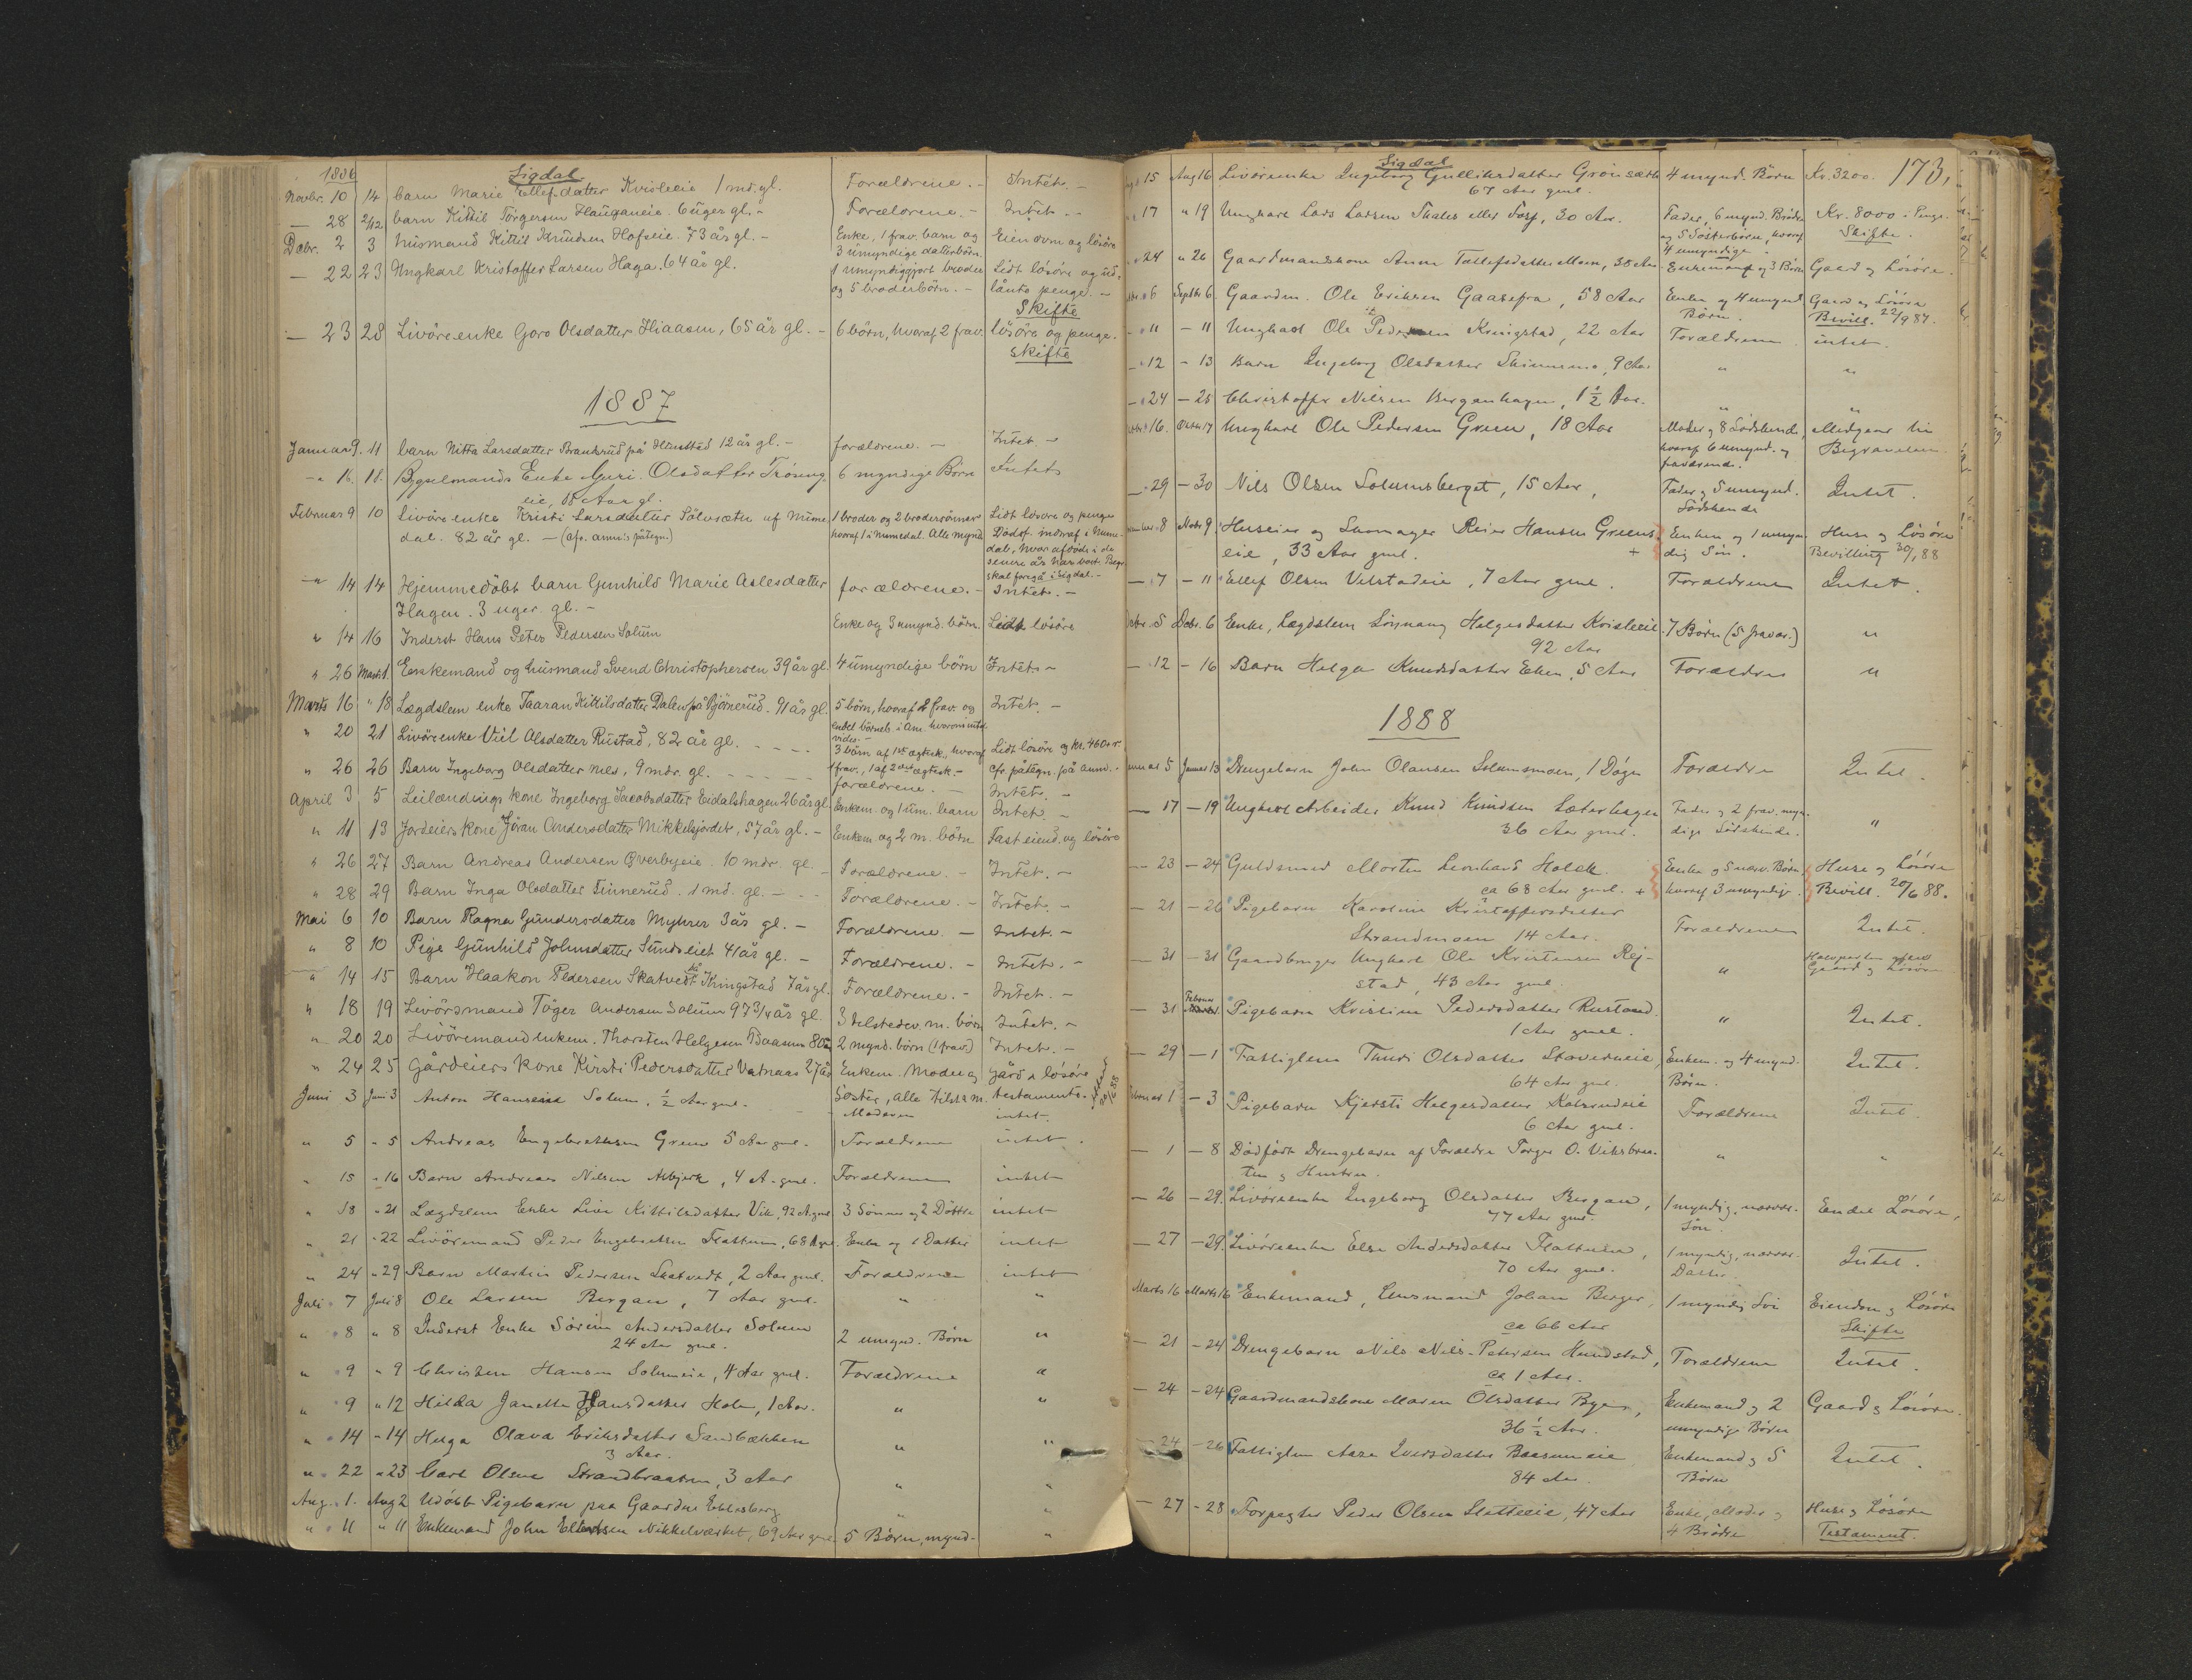 1886
Sigdal
Novbr. 10 14 barn Marie Ellefsdatter Kvisleeie 1 md. gl. Forældrene. - Intet. -
— 28 2/12 barn Kittil Torgersen Hauganeie. 6 uger gl. - Forældrene. - Intet. -
Debr. 2 3 husmand Kittil Knudsen Hofseie. 73 år gl. - Enke, 1 frav. barn og Eiendom og lösöre
3 umyndige datterbörn.
— 22 23 Ungkarl Kristoffer Larsen Haga. 64 år gl. 1 umyndiggjort broder Lidt lösöre og ud-
og 5 broderbörn. - lånte penge. -
Skifte
— 23 28 Livöreenke Goro Olsdatter Hiaasen, 65 år gl. - 6 börn, hvoraf 2 frav. lösöre og penge.
Skifte
1887
Januar 9. 11 barn Nitta Larsdatter Braatsrud på Hunstad 12 år gl. - forældrene. - Intet -
-" 16. 18. Bygselmands Enke Guri Olsdatter Trönng 6 myndige Börn Intet
eie, 68 Aar gl.
Februar 9 10 Livöre enke Kristi Larsdatter Sölvsæter af Nume 1 broder og 2 brodersönner Lidt lösöre og penge
dal. 82 år gl. - (cfr. anm:s påtegn.) hvoraf 1 i Numedal. Alle mynd. Dödsf. indraf i Nume-
dal, hvor afdöde i de
senere år har boet. Begr.
skal foregå i Sigdal. -
-" 14 14 Hjemmedöbt barn Gunhild Marie Aslesdatter forældrene. - Intet. -
Hagen. 3 uger gl. -
" 14 16 Inderst Hans Peter Pedersen Solum Enke og 3 umynd. börn. Lidt lösöre
" 26 Marts 1. Enkemand og husmand Svend Christophersen 39 år gl. 4 umyndige börn Intet -
Marts 16 " 18 Lægdslem enke Taaran Kittilsdatter Dalen på Bjørnerud. 91 år gl. 5 börn, hvoraf 2 frav. og Intet. -
endel börneb. i Am. hvorom intet
vides. -
" 20 21 Livöreenke Viel Olsdatter Rustad, 82 år gl. 3 börn af 1ste ægtesk., hvoraf Lidt lösöre og kr. 460
1 frav., 1 af 2det ægtesk. - cfr. påtegn. på anm. -
" 26 26 Barn Ingeborg Olsdatter Nes, 9 mdr. gl. forældrene. - Intet. -
April 3 5 Leilændings kone Ingeborg Jacobsdatter Eidalshagen 26 år gl. Enkem. og 1 um. barn Intet. -
" 11 13 Jordeiers kone Jöran Andersdatter Mikkelsjordet, 57 år gl. - Enkem. og 2 m. börn Fast eiend. og lösöre
" 26 27 Barn Andreas Andersen Overbyeie. 10 mdr. gl. - Forældrene. - Intet. -
" 28 29 Barn Inga Olsdatter Finnerud. 1 md. gl. - Forældrene. - Intet. -
Mai 6 10 Barn Ragna Gundersdatter Myhrer 3 år gl. - Forældrene. - Intet. -
" 8 10 Pige Gunhild Johnsdatter Sundseiet 41 år gl. - Forældrene. - Intet. -
" 14 15 Barn Haakon Pedersen Skatvedt på Kringstad 7 år gl. Forældrene. - Intet. -
" 18 19 Livörsmand Töger Andersen Solum 97 3/4 år gl. 3 tilstedev. m. börn Intet. -
" 20 20 Livöremand enkem. Thorsten Helgesen Baasum 80 år 2 mynd. börn (1 frav.) Intet. -
" 24 25 Gårdeiers kone Kirsti Pedersdatter Vatnaas 27 år Enkem. Moder og gård & lösöre
Juni 3 Juni 3 Anton Hansen Solum, ½ Aar gml. Söster, alle tilst. m. testamente.
Moderen intet.
" 5 " 5 Andreas Engebrethsen Green 5 Aar gml. Forældrene intet.
" 15 " 16 Barn Andreas Nilsen Asbjerk, 4 A. gml. Forældrene intet
" 18 " 21 Lægdslem Enke Live Kittilsdatter Vik, 92 A. gml 3 Sønner og 2 Døttre intet
" 21 " 22 Livöremand Peder Engebretsen Frattum, 68 A gml. Enke og 1 Datter intet
" 24 " 29 Barn Martin Pedersen Skatvedt, 2 Aar gml. Forældrene intet
Juli 7 Juli 8 Ole Larsen Bergan, 7 Aar gml. " "
" 8 " 8 Inderst Enke Sörine Andersdatter Solum 2 umynd. Börn "
24 Aar gml.
" 9 " 9 Christen Hansen Solumeie, 4 Aar gml. Forældrene "
" 9 " 12 Hilda Janette Hansdatter Holm, 1 Aar. " "
" 14 " 14 Helga Olava Eriksdatter Sandbækken " "
3 Aar.
" 22 " 23 Carl Olsen Strandbraaten, 3 Aar " "
Aug. 1. Aug 2 Udöbt Pigebarn paa Gaarden Eblesberg " "
" 11 " 11 Enkemand John Ellevsen Nikkelværket, 69 Aar gml. 5 Börn, mynd. "
Sigdal
173.
15 Aug 16 Livöreenke Ingeborg Gulliksdatter Grönsæth 4 mynd. Börn Kr. 3200.
67 Aar gml.
17 " 19 Ungkarl Lars Larsen Thales eller Forp, 30 Aar. Fader, 6 mynd. Brödre Kr. 8000 i Penge.
og 5 Sösterbörn, hvoraf Skifte.
4 umyndige.
24 " 26 Gaardmandskone Anne Tollefsdatter Moen, 38 Aar Enkemand og 3 Börn Gaard og Lösöre.
6 Septbr 6. Gaardm. Ole Eriksen Gaasefra, 58 Aar Enke og 4 umynd. Gaard og Lösöre
Börn. Bevill. 22/9 87.
- 11 - 11 Ungkarl Ole Pedersen Kringstad, 22 Aar Forældrene intet.
- 12 - 13 Barn Ingeborg Olsdatter Skinnenes, 9 Aar " "
- 24 - 25 Christoffer Nilsen Berganhagen, 1½ Aar. " "
16. Oktbr 17 Ungkarl Ole Pedersen Green, 18 Aar Moder og 8 Södskende, Medgaar til
hvoraf 6 umynd. og Begravelsen.
fraværende.
- 29 - 30 Nils Olsen Solumsberget, 15 Aar, Fader og 5 umynd. Intet.
Södskende
8 Novbr 9. Huseier og Skomager Reier Hansen Greens Enken og 1 umyn- Huse og Lösöre
eie, 33 Aar gml. + dig Sön. Bevilling 30/1 88
- 7 - 11 Ellef Olsen Velstadeie, 7 Aar gml. Forældrene Intet.
Decbr. 5 Decbr. 6 Enke, Lægdslem Helgesdatter Kvisleeie. 7 Børn (5 fravær.) "
92 Aar
- 12 - 16 Barn Helga Knudsdatter Eken, 5 Aar Forældre "
1888
5 Januar 13 Drengebarn John Olausen Solumsmoen, 1 Døgn Forældre Intet.
- 17 - 19 Ungkarl Arbeider Knud Knudsen Sæterhagen Fader og 2 frav. myn- "
36 Aar gml. dige Södskende.
- 23 - 24 Guldsmed Morten Leonhard Holck Enke og 5 nærv. Børn Huse og Lösöre
ca 68 Aar gml. + hvoraf 3 umyndige. Bevill. 20/6 88.
- 21 - 26 Pigebarn Karoline Kristoffersdatter
Strandmoen 14 Aar. Forældrene Intet.
- 31 - 31 Gaardbruger Ungkarl Ole Kristensen Rej- " Halvparten af
stad, 43 Aar gml. Gaard og Lösöre
- 31 Februar Pigebarn Kristine Pedersdatter Rustand " Intet.
1 Aar gml.
- 29 - 1 Fattiglem Thuri Olsdatter Staverneie, Enkem. og 4 mynd. Intet.
64 Aar gml. Börn.
Februar 1 - 3 Pigebarn Kjersti Helgesdatter Kolsrudeie Forældrene Intet.
6 Aar gml.
- 1 - 8 Dödfödt Drengebarn af Forældre Torger O. Viksbraa- " "
ten og Hustru.
- 26 - 29. Livöreenke Ingeborg Olsdatter Bergan, 1 myndig, nærvær. Endel Lösöre,
77 Aar gml. Sön.
- 27 - 29. Livöreenke Else Andersdatter Frattum, 1 myndig, nærvær. Intet.
70 Aar gml. Datter.
Marts 16 Marts 16 Enkemand, Husmand Johan Berger, 1 myndig Sön Eiendom og Lösöre
ca 66 Aar Skifte
- 21 - 24 Drengebarn Nils Nils-Petersen Hundstad, Forældrene Intet.
ca 1 Aar.
- 24 - 24 Gaardmandskone Maren Olsdatter Byen, Enkemand og 2 Gaard og Lösöre.
36½ Aar. umyndige Børn
- 24 - 26 Fattiglem Aase Iversdatter Baasumeie Enkemand og 5 Intet.
84 Aar. Börn
- 27 - 28 Forpagter Peder Olsen Sletteeie, 47 Aar Enke, Moder og Huse og Lösöre
4 Brödre Testament.